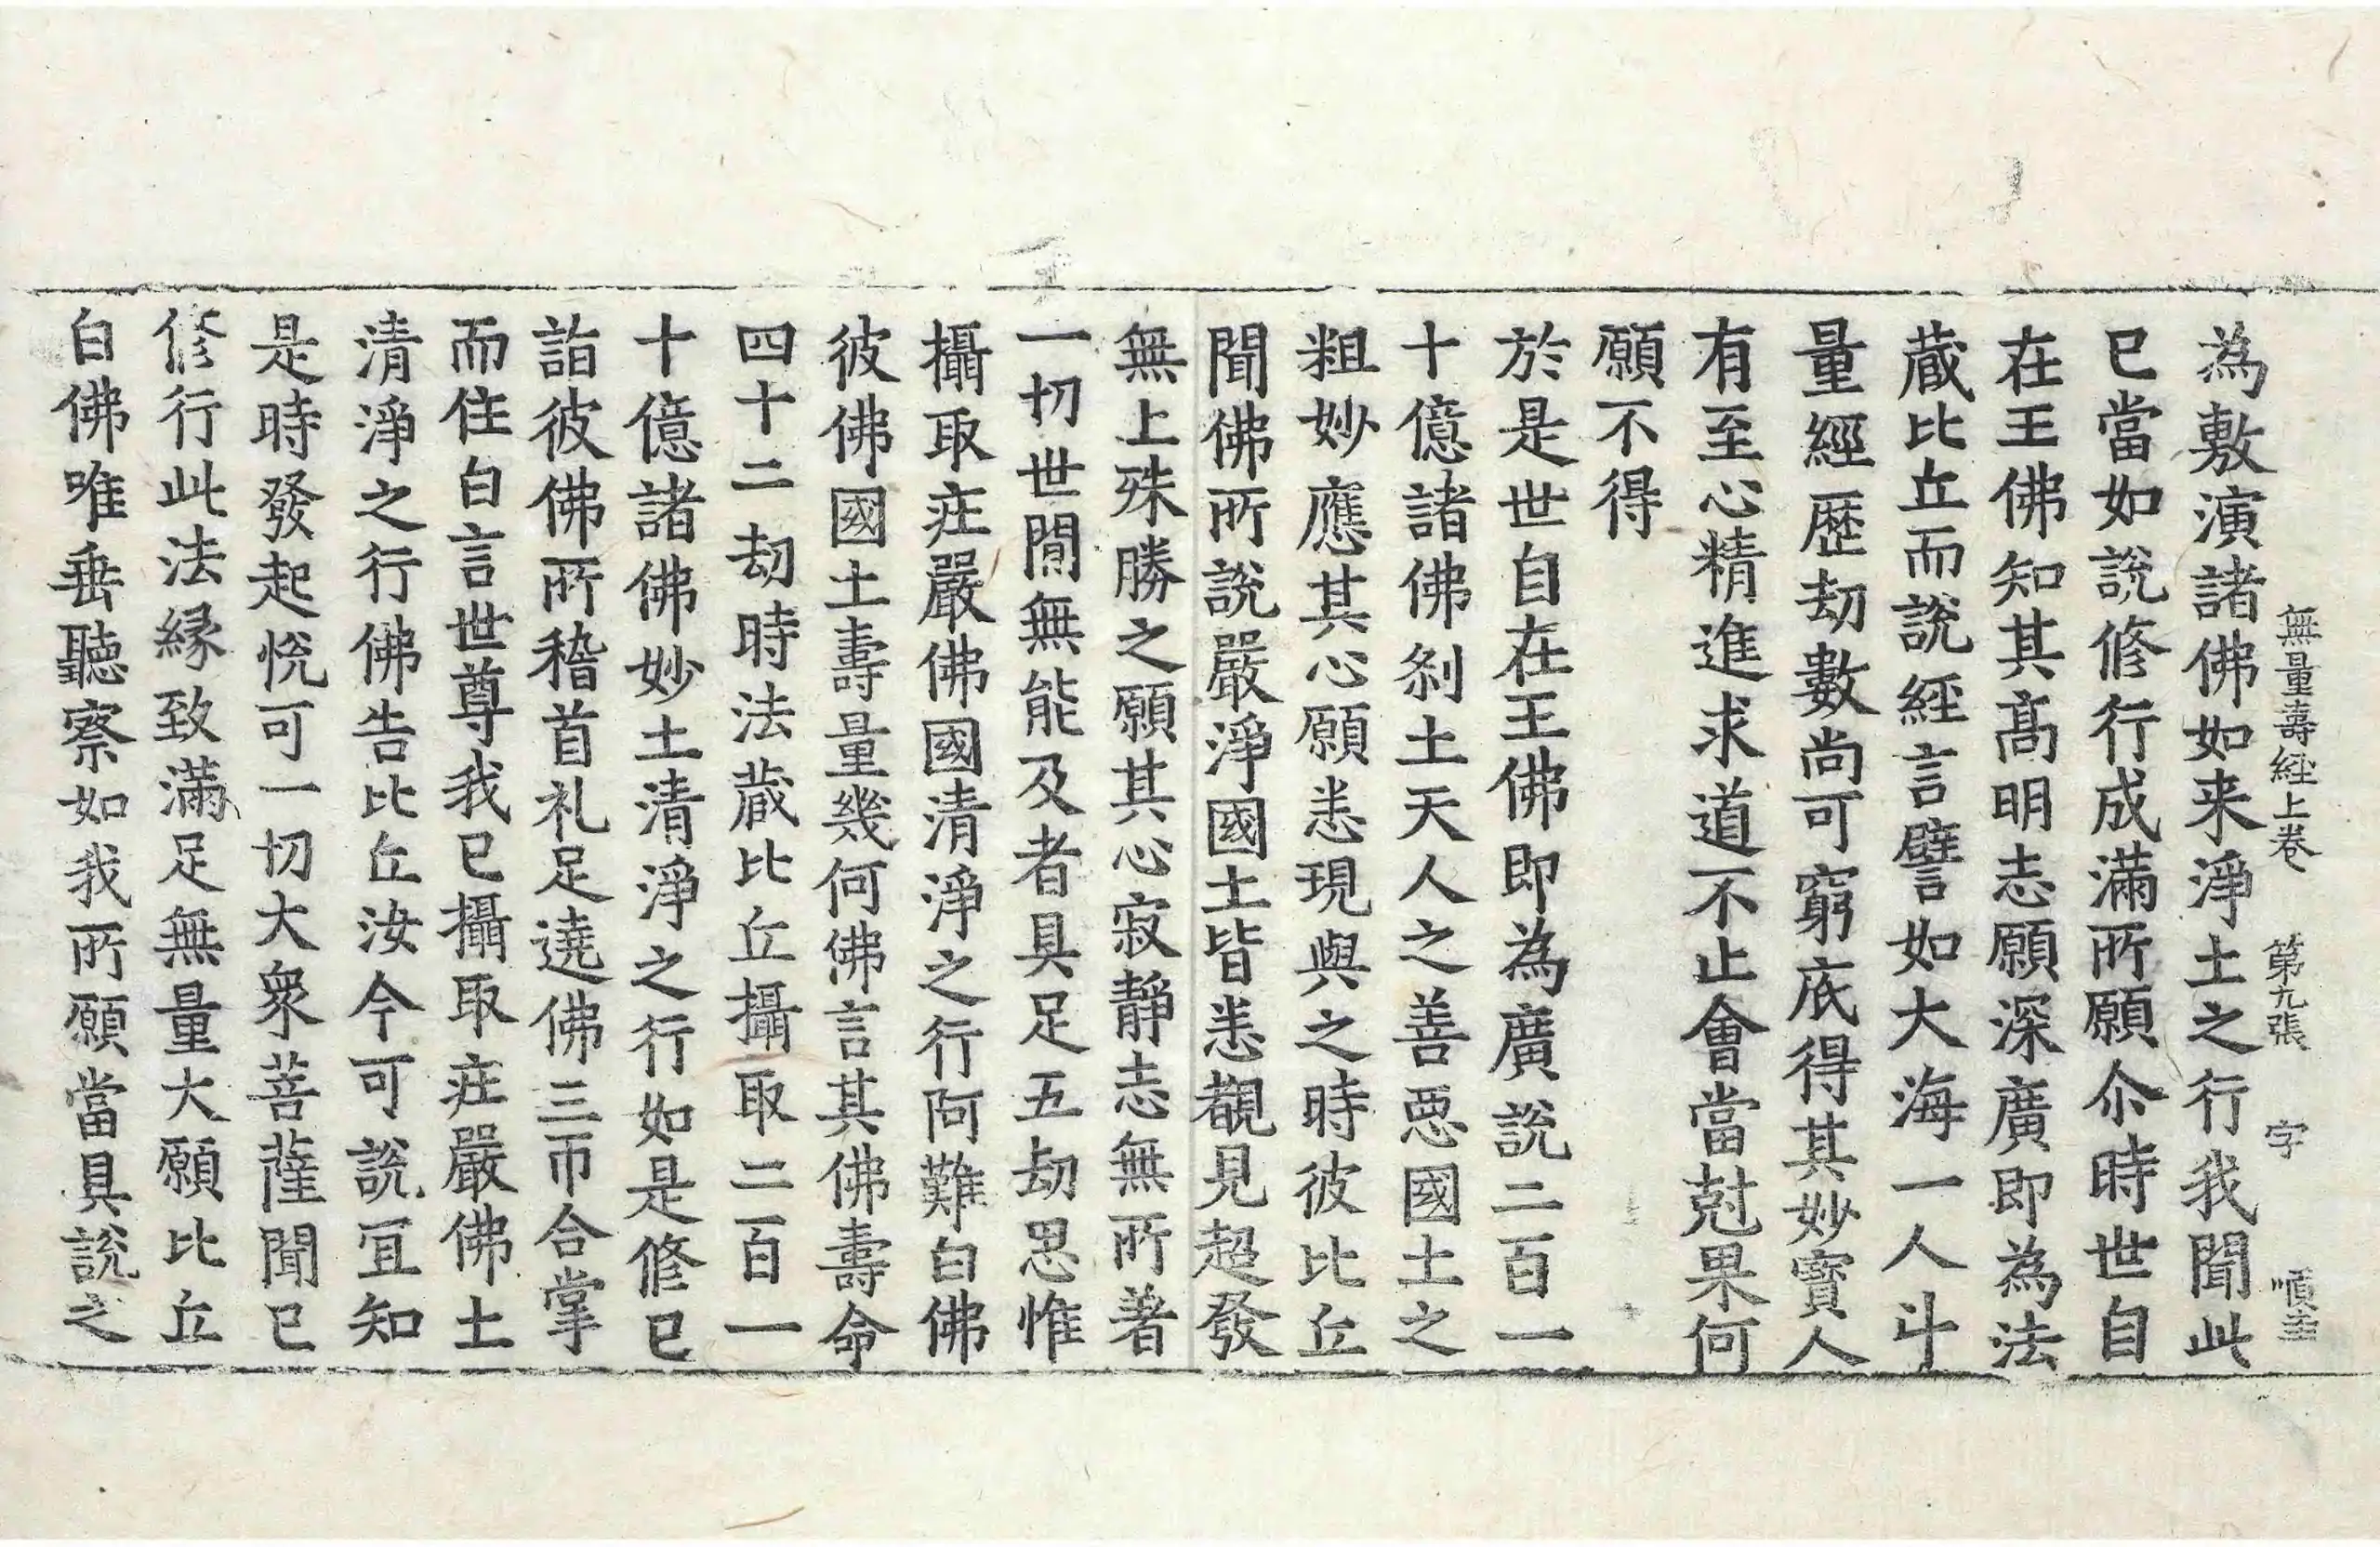 無量壽經上卷 第九張 字 順圭
為敷演諸佛如来淨土之行我聞此
已當如說修行成滿所願尒時世自
在王佛知其髙明志願深廣即為法
蔵比丘而說經言譬如大海一人斗
量經歷劫數尚可窮底得其妙寳人
有至心精進求道不止會當尅果何
願不得
於是世自在王佛即為廣說二百一
十億諸佛剎土天人之善惡國土之
粗妙應其心願悉現與之時彼比丘
聞佛所說嚴淨國土皆悉覩見超發
無上殊勝之願其心寂靜志無所著
一切世間無能及者具足五劫思惟
攝取莊嚴佛國清淨之行阿難白佛
彼佛國土壽量幾何佛言其佛壽命
四十二劫時法蔵比丘攝取二百一
十億諸佛妙土清淨之行如是修已
詣彼佛所稽首礼足遶佛三帀合掌
而住白言世尊我已攝取莊嚴佛土
清淨之行佛告比丘汝今可說冝知
是時發起悅可一切大衆菩薩聞已
修行此法縁致滿足無量大願比丘
白佛唯垂聽察如我所願當具說之